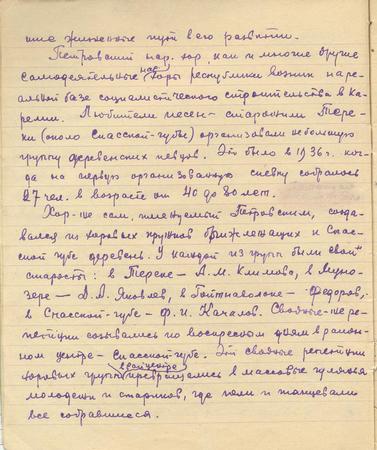 шие жизненные пути в его развитии.
Петровский нар. хор, как и многие другие
самодеятельные нар. хоры республики возник на ре-
альной базе социалистического строительства в Ка-
релии. Любители песен - старожилы Тере-
ки (около Спасской-губы) организовали небольшую
группу деревенских певцов. Это было в 1936 г. ког-
да на первую организованную спевку собралось
27 чел. в возрасте от 40 до 80 лет.
Хор-же сам, именуемый Петровским, созда-
вался из хоровых кружков близлежащих к Спас-
ской губе деревень. У каждой из групп были свои
старосты: в Тереке - А.М. Климова, в Муно-
зере - Яковлев, в Гойтнаволоке - Федоров,
в Спасской-губе - Ф.И. Качалов. Сводные-же ре-
петиции созывались по воскресным дням в район-
ном центре - Спасской-губе. Эти сводные репетиции
хоровых групп в райцентре превращались в массовые гулянья
молодежи и стариков, где пели и танцевали
все собравшиеся.